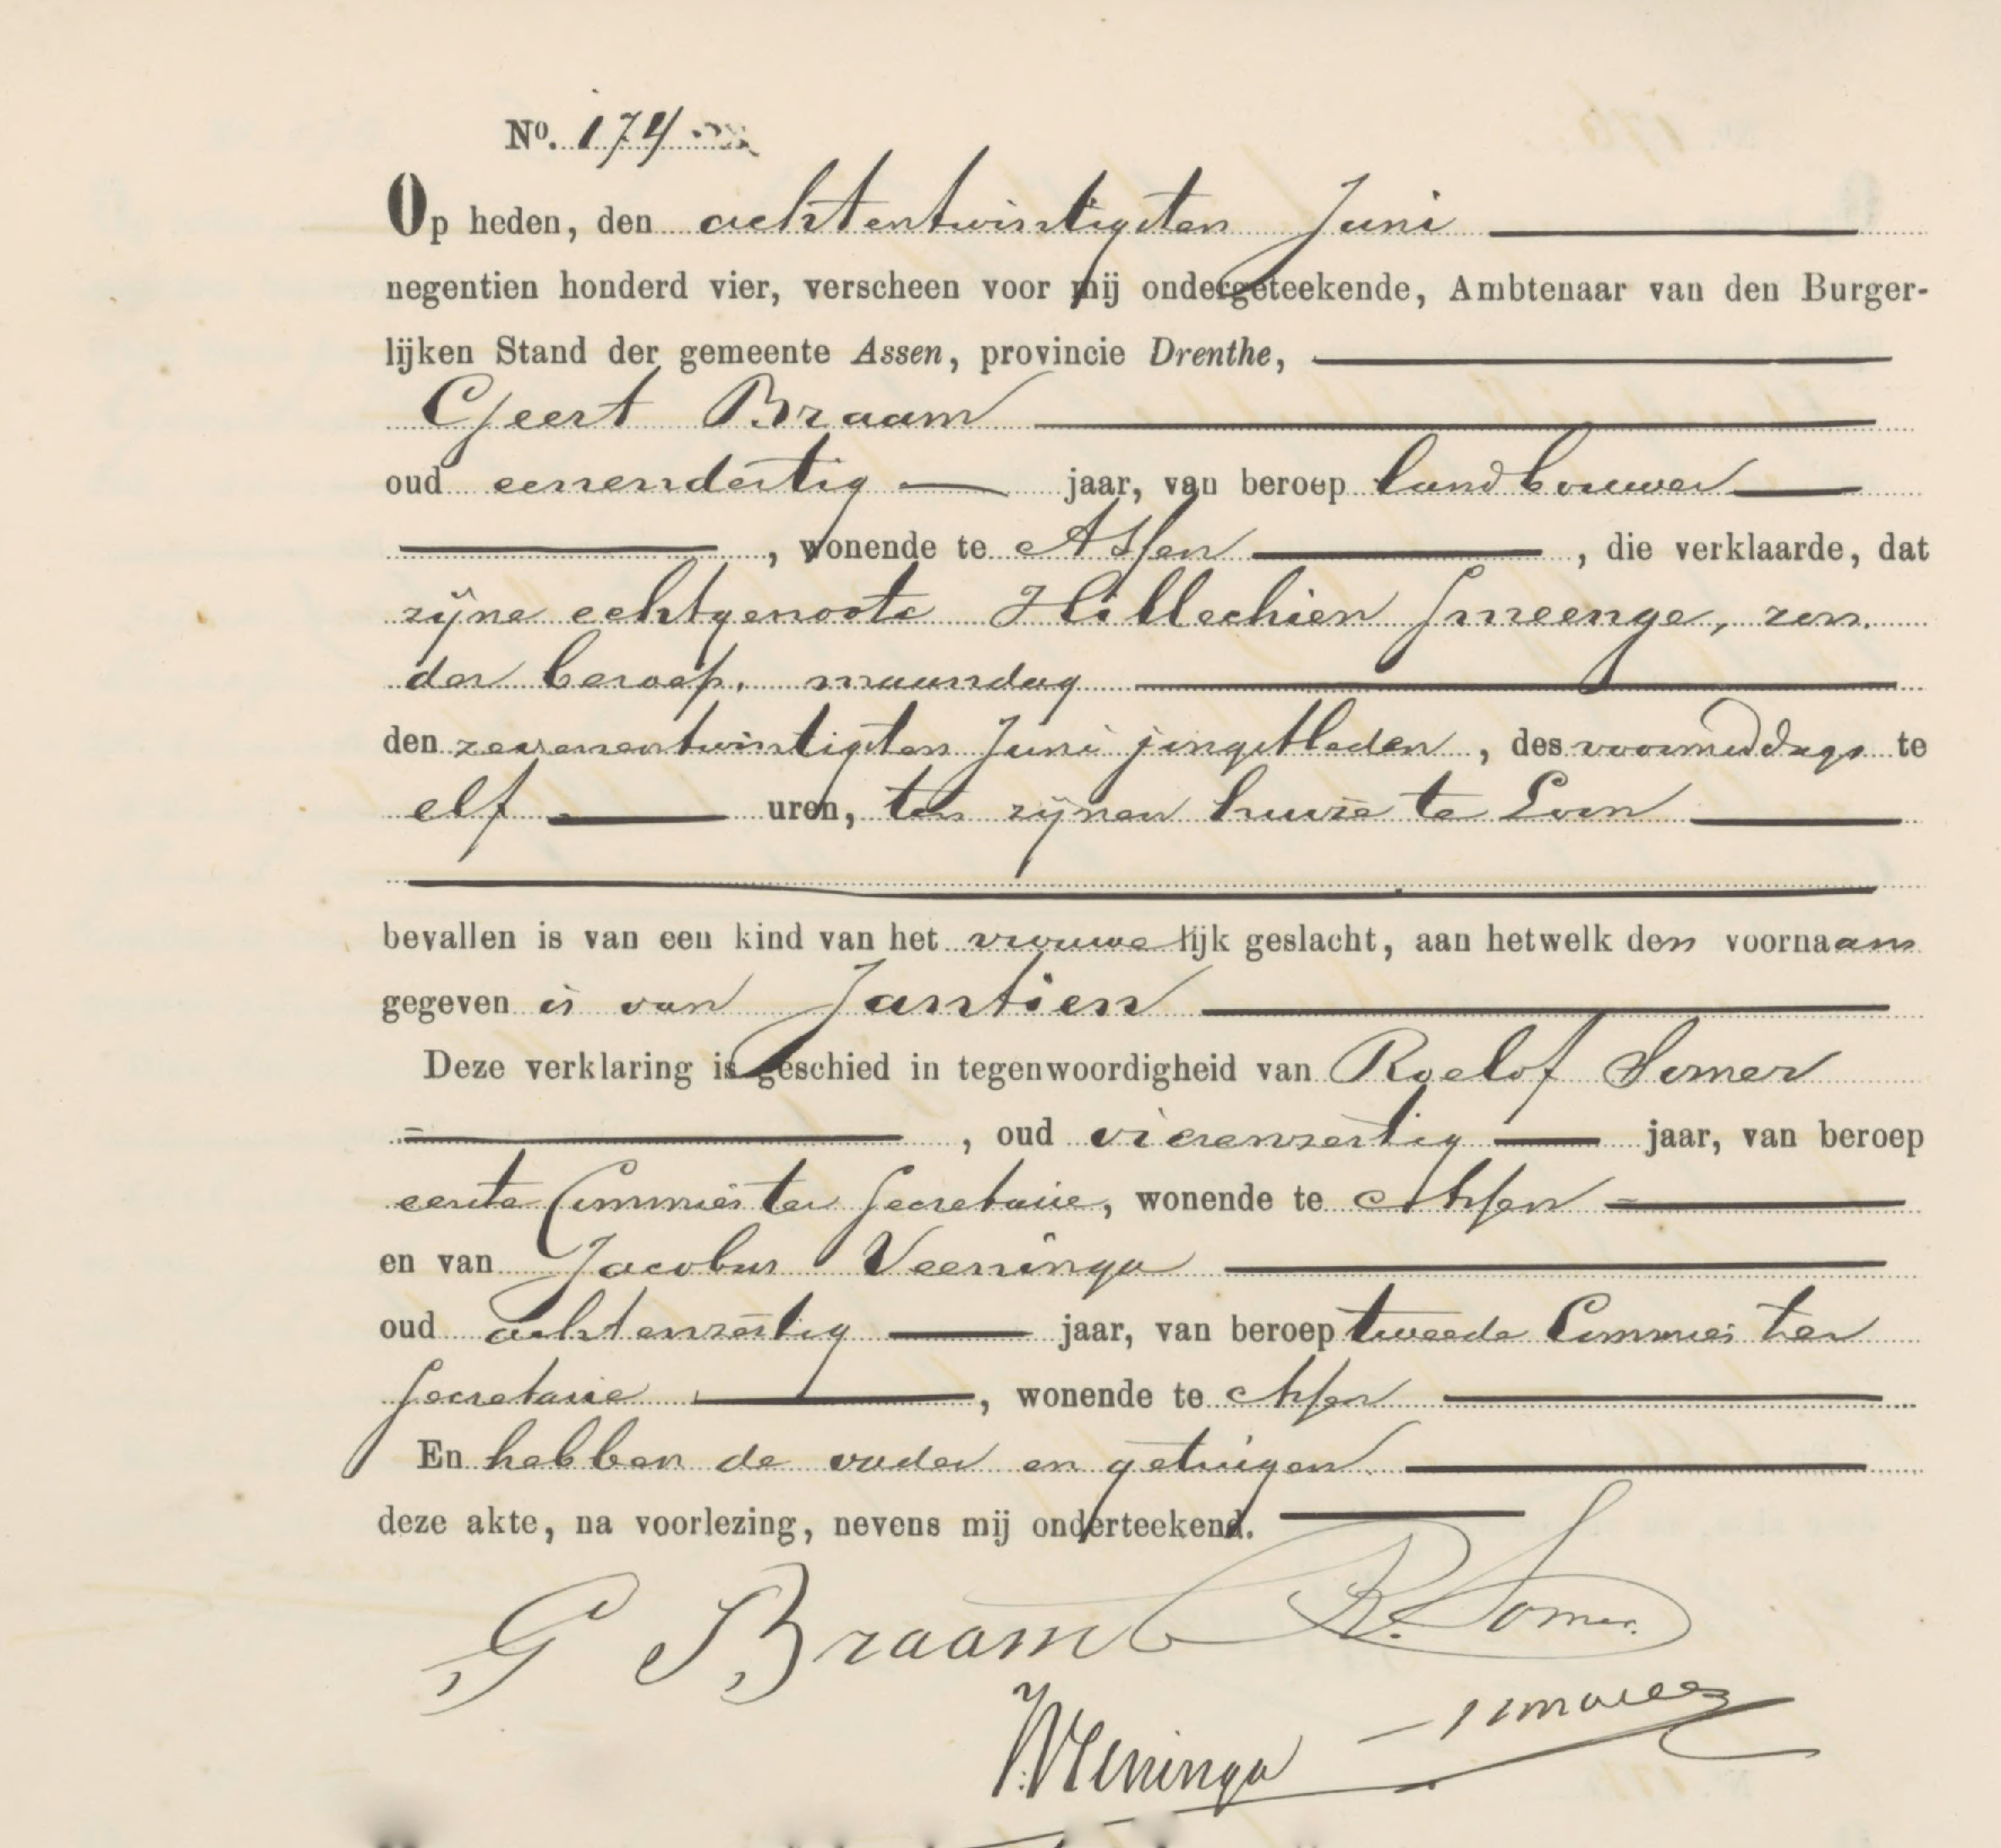 No. 174
Op heden, den achtentwintigsten Juni
negentien honderd vier, verscheen voor mij ondergeteekende, Ambtenaar van den Burger-
lijken Stand der gemeente Assen, provincie Drenthe,
Geert Braam
oud eenendertig jaar, van beroep landbouwer
, wonende te Assen , die verklaarde, dat
zijne echtgenoote Hillechien Smeenge, zon
der beroep, maandag
den zevenentwintigsten Juni jongstleden, des voormiddags te
elf uren, ten zijnen huize te Loon
bevallen is van een kind van het vrouwelijk geslacht, aan hetwelk den voornaam
gegeven is van Jantien
Deze verklaring is geschied in tegenwoordigheid van Roelof Somer
, oud vierenzestig jaar, van beroep
eerste Commies ter Secretarie, wonende te Assen
en van Jacobus Veeninga
oud achtenzestig jaar, van beroep tweede Commies ter
Secretarie , wonende te Assen
En hebben de vader en getuigen
deze akte, na voorlezing, nevens mij onderteekend.
G Braam R. Somer.
J. Veninga